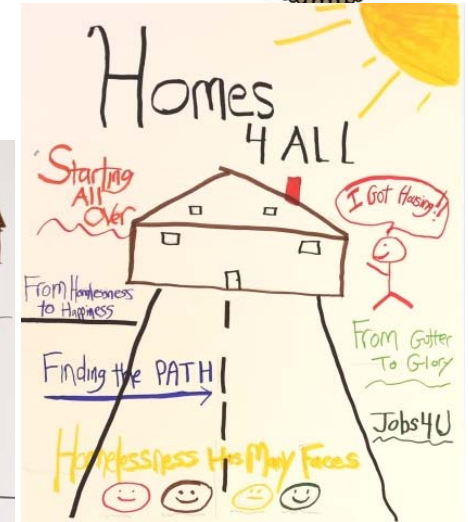 Homes
4 ALL
Starting
All
Over
I Got Housing!!
From Homelessness
to Happiness
From Gutter
To Glory
Finding the PATH
Jobs4U
Homelessness Has Many Faces